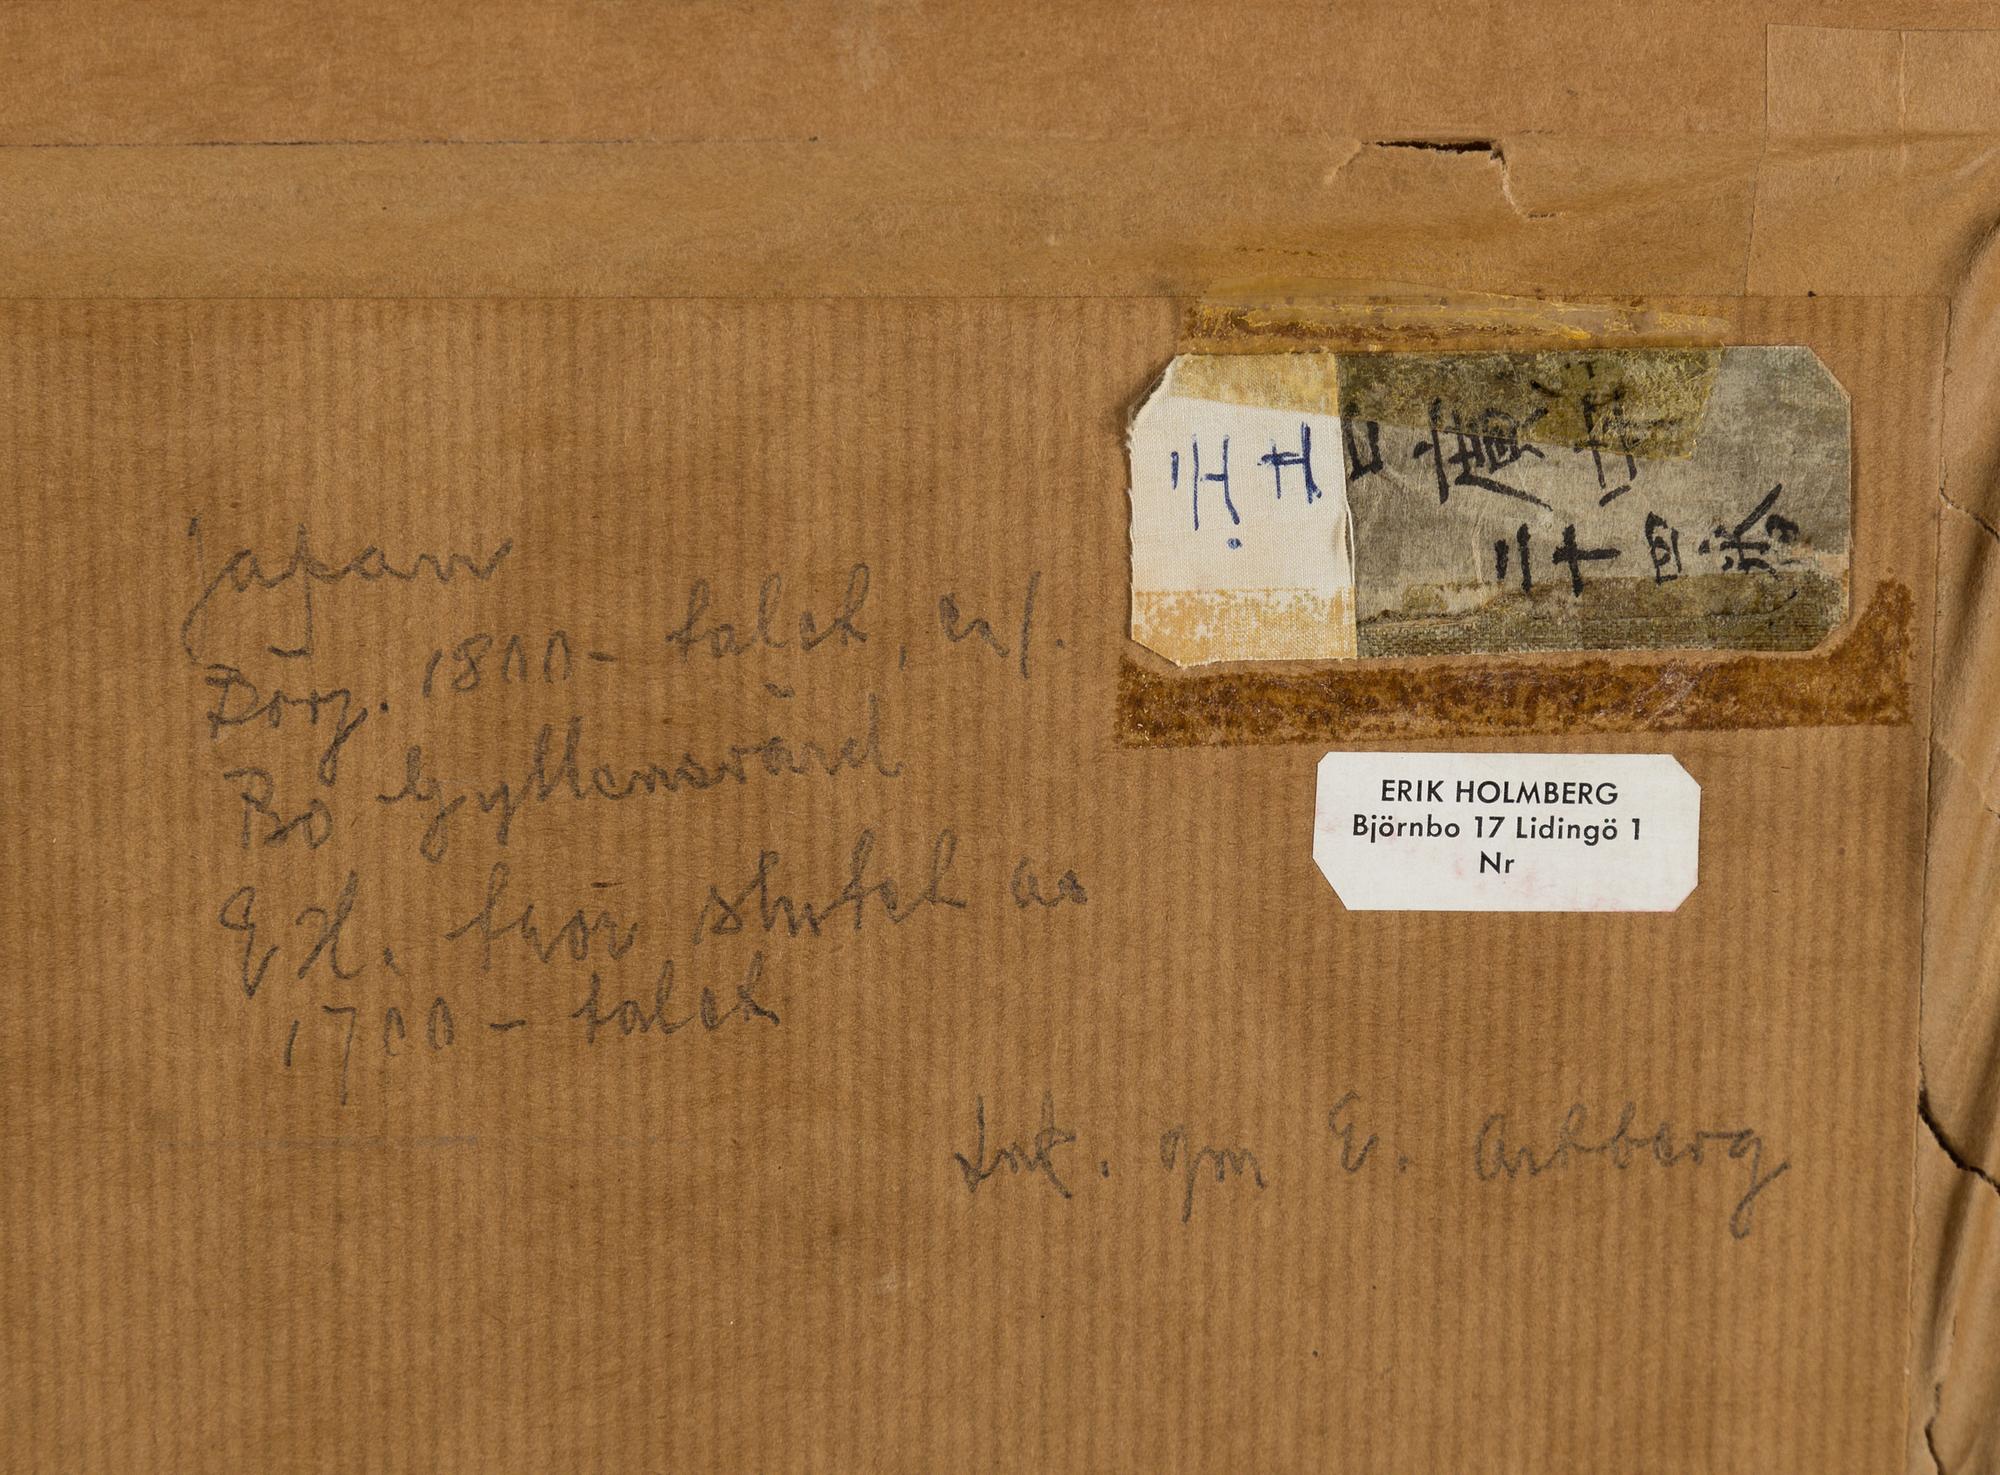 Japan
Börj. 1800-talet, enl.
Bo Gyllensvärd
E H. tror slutet av
1700-talet
Ink. gm E. Arbberg
ERIK HOLMBERG
Björnbo 17 Lidingö 1
Nr